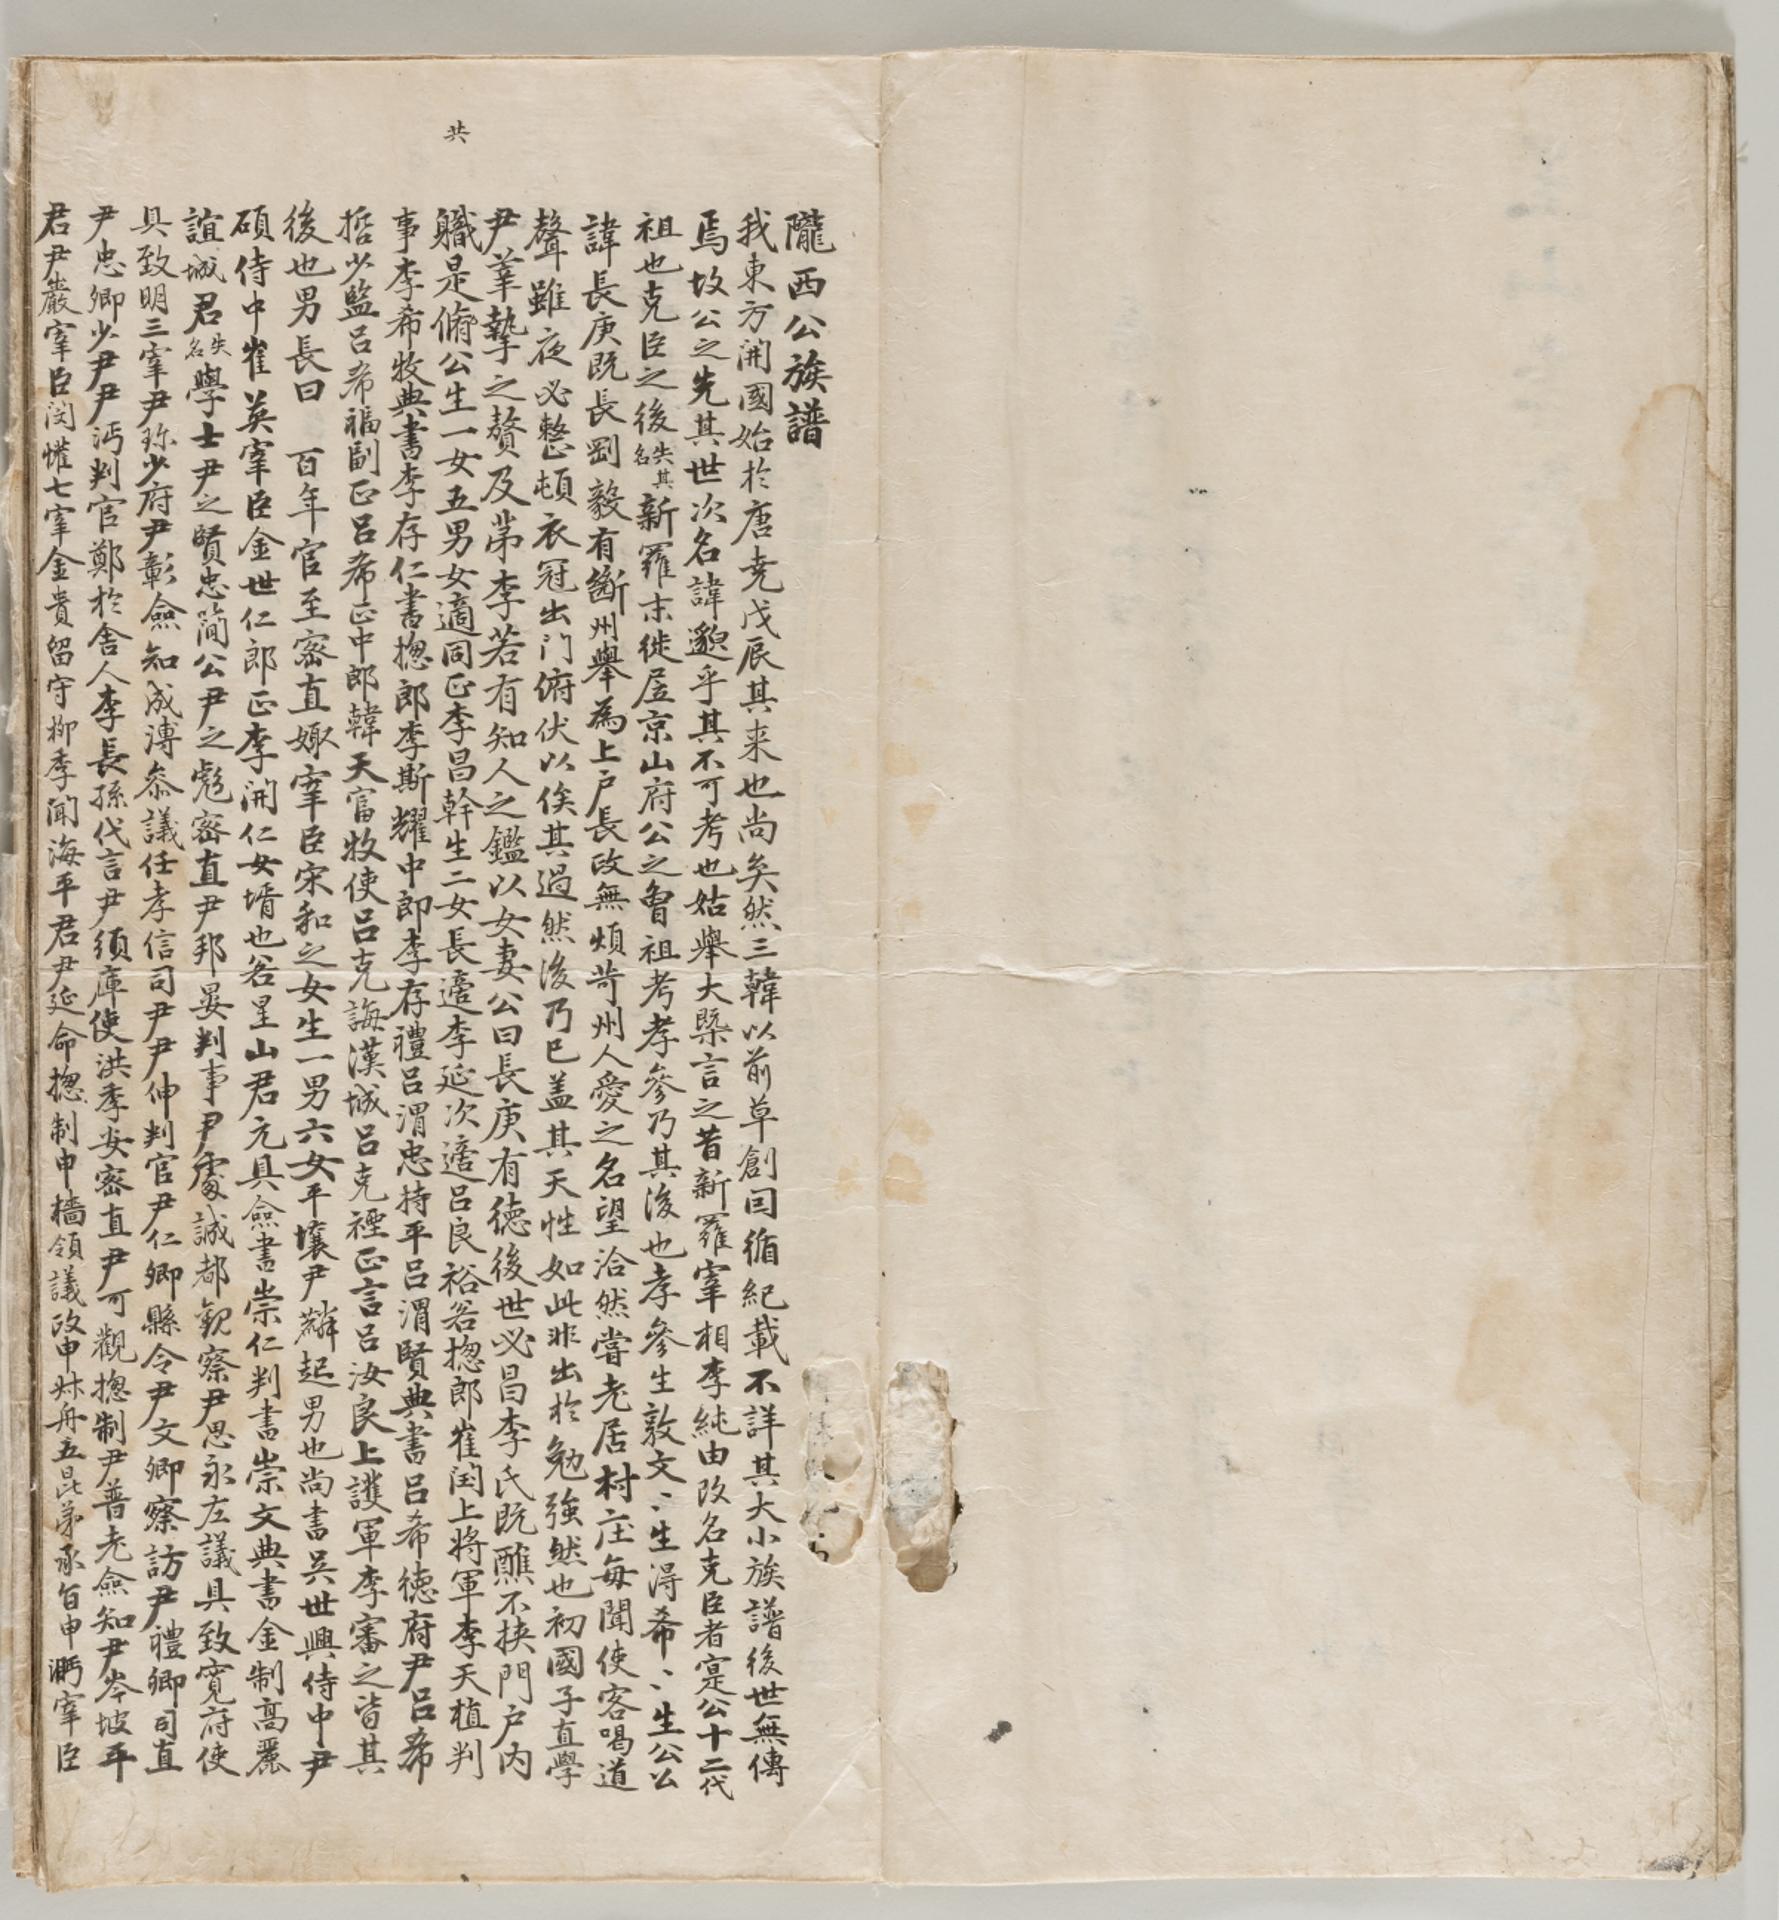 共
隴西公族譜
我東方開國始於唐尭戊辰其来也尚矣然三韓以前草創囙循紀載不詳其大小族譜後世無傳
焉故公之先其世次名諱邈乎其不可考也姑舉大槩言之昔新羅宰相李純由改名克臣者寔公十二代
祖也克臣之後失其名新羅末徙居京山府公之曾祖考孝參乃其後也孝參生敦文、生得希、生公公
諱長庚既長剛毅有断州舉為上戸長政無煩苛州人愛之名望洽然嘗老居村庄每聞使客喝道
聲雖夜必整頓衣冠出門俯伏以俟其過然後乃已盖其天性如此非出於勉強然也初國子直學
尹莘摯之贅及苐李若有知人之鑑以女妻公曰長庚有徳後世必昌李氏既醮不挾門户内
職是脩公生一女五男女適同正李昌幹生二女長適李延次適呂良裕若揔郎崔閏上將軍李天植判
事李希牧典書李存仁書揔郎李斯耀中郎李存禮呂渭忠持平呂渭賢典書呂希徳府尹呂希
哲少監呂希福副正呂希正中郎韓天富牧使呂克誨漢城呂克禋正言呂汝良上護軍李審之皆其
後也男長曰　百年官至密直娵宰臣宋和之女生一男六女平壤尹麟起男也尚書吳世興侍中尹
碩侍中崔英宰臣金世仁郎正李開仁女壻也若星山君元具僉書崇仁判書崇文典書金制高麗
誼城君失名學士尹之賢忠簡公尹之彪密直尹邦晏判事尹處誠都観察尹思永左議具致寛府使
具致明三宰尹珎少府尹彰僉知成溥叅議任孝信司尹尹伸判官尹仁卿縣令尹文卿察訪尹禮卿司直
尹忠卿少尹尹沔判官鄭於舍人李長孫代言尹須庫使洪季安密直尹可觀揔制尹普老僉知尹岑坡平
君尹巖宰臣閔懽七宰金貴留守柳季聞海平君尹延命揔制申檣領議政申叔舟五昆弟承旨申㴐宰臣